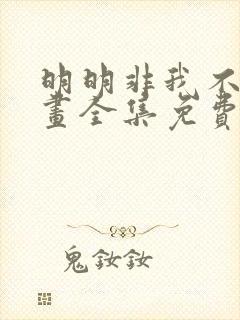 明明非我不
畫全集免費
鬼釹釹